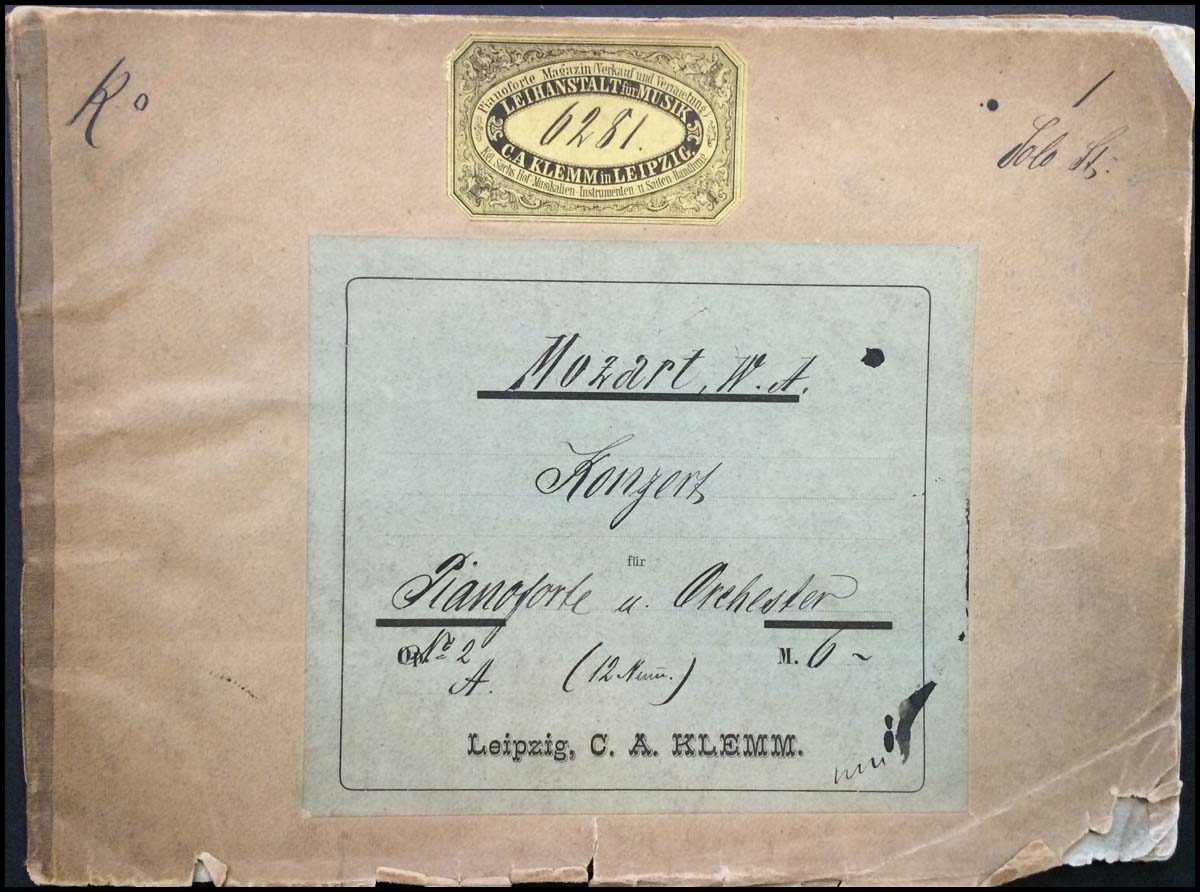 K o
Pianoforte Magazin (Verkauf und Vermietung)
LEIHANSTALT für MUSIK
6281.
C. A. KLEMM in LEIPZIG.
Kgl. Sächs. Hof-Musikalien-Instrumenten- u Saiten Handlung.
1
Solo St.
Mozart, W. A.
Konzert
für
Pianoforte u. Orchester
Op. Nr 2 M. 6 ~
A. (12 Num.)
Leipzig, C. A. KLEMM.